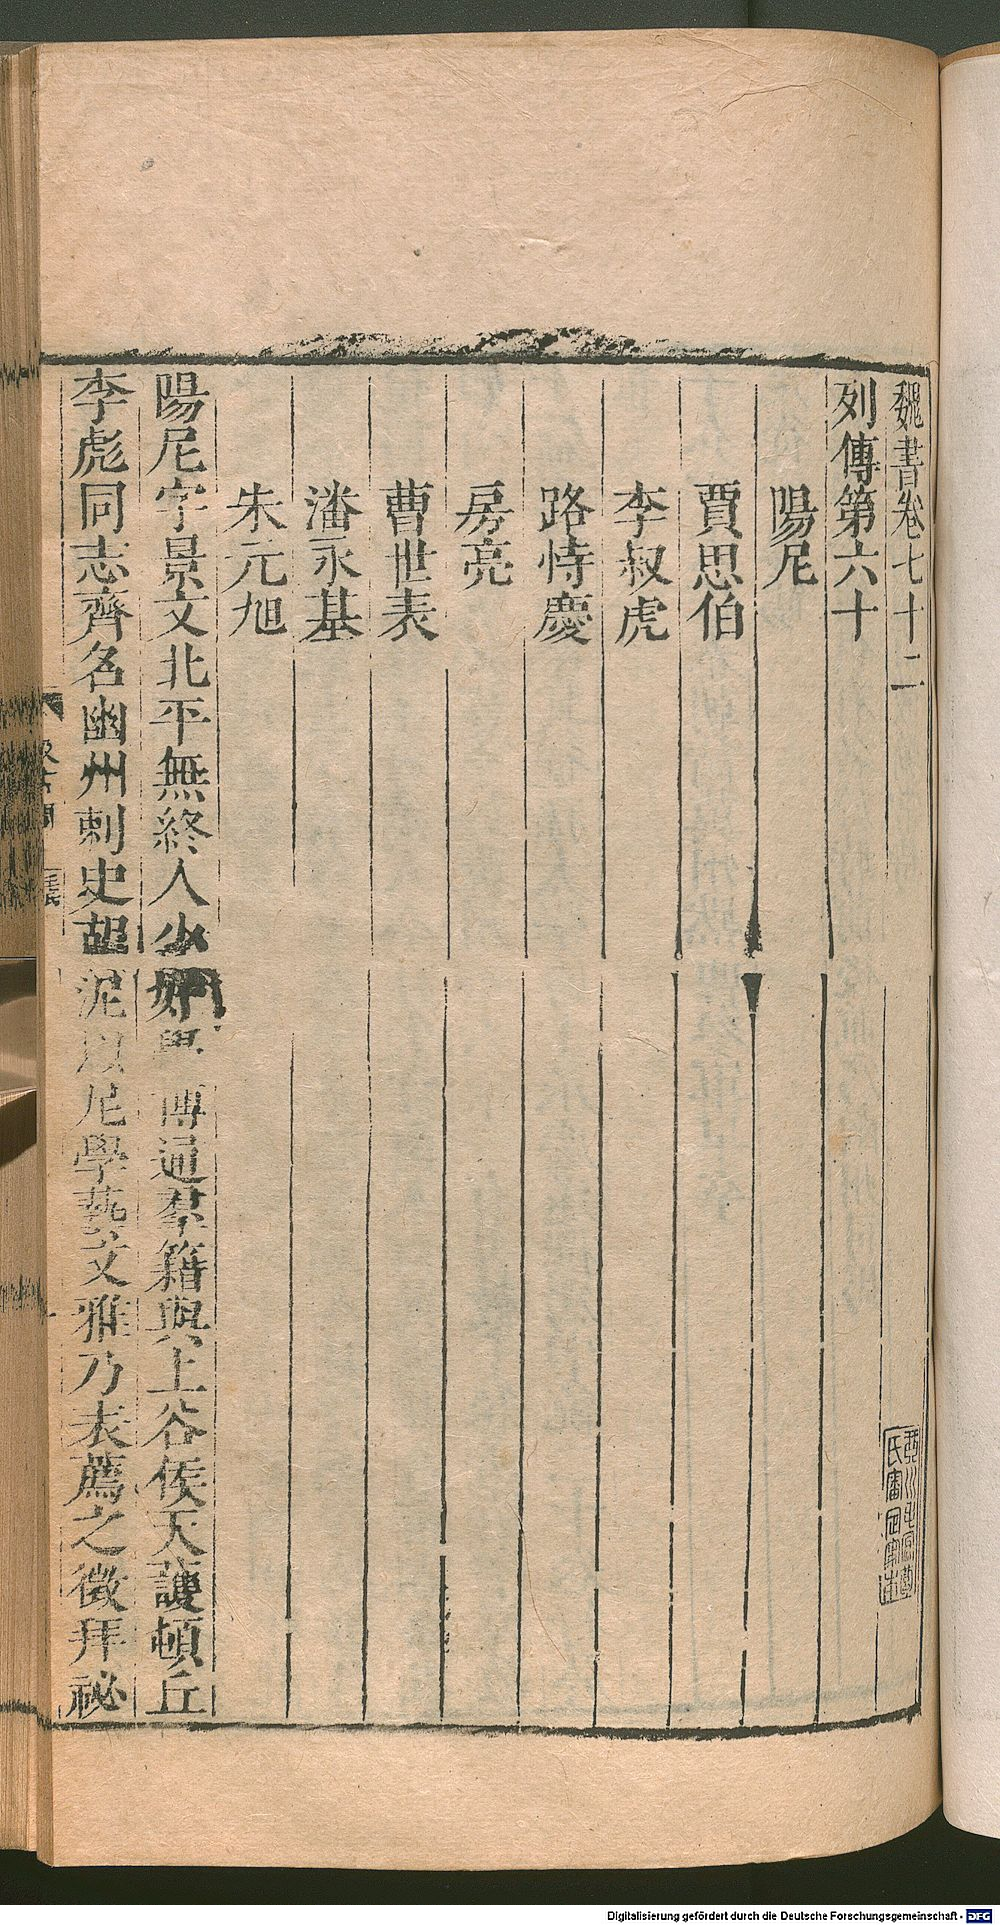 魏書卷七十二
列傳第六十
陽尼
賈思伯
李叔虎
路恃慶
房亮
曹世表
潘永基
朱元旭
陽尼字景文北平無終人少好學博通羣籍與上谷侯天護頓丘
李彪同志齊名幽州刺史胡泥以尼學藝文雅乃表薦之徵拜祕
Digitalisierung gefördert durch die Deutsche Forschungsgemeinschaft - DFG